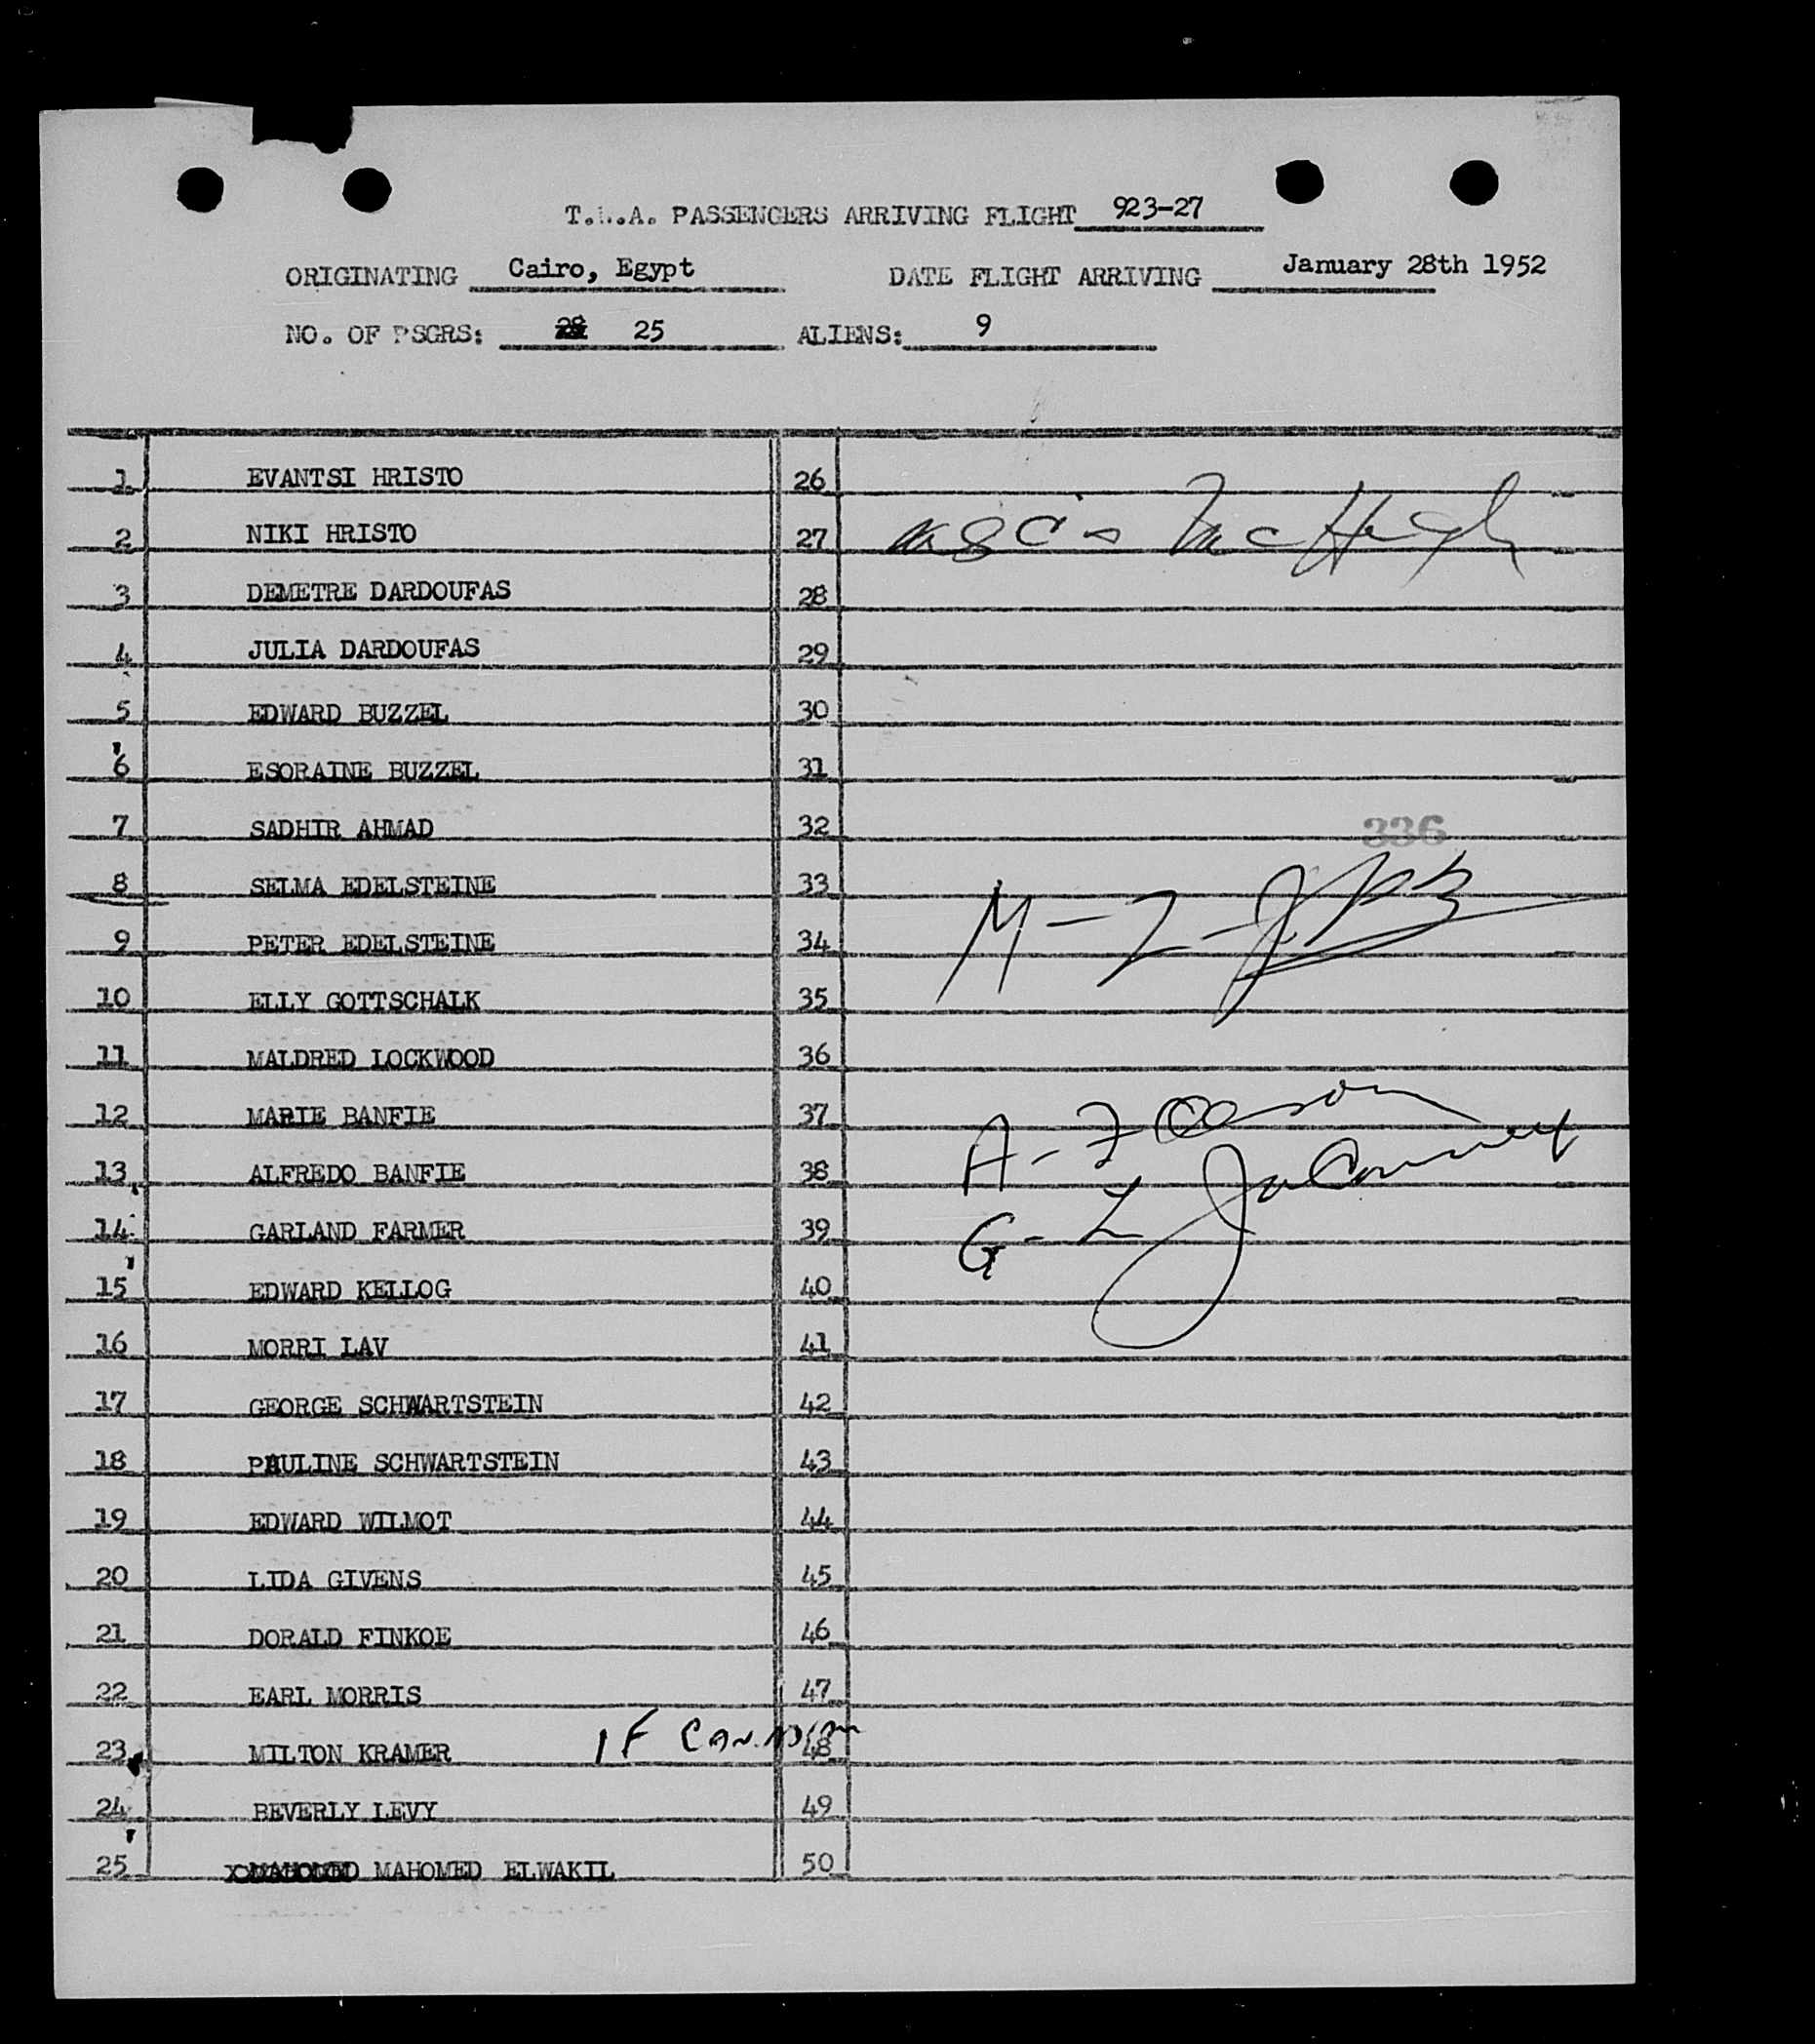 T.W.A. PASSENGERS ARRIVING FLIGHT 923-27
ORIGINATING Cairo, Egypt DATE FLIGHT ARRIVING January 28th 1952
NO. OF PSGRS: 25 ALIENS: 9
1 EVANTSI HRISTO 26
2 NIKI HRISTO 27 McHugh
3 DEMETRE DARDOUFAS 28
4 JULIA DARDOUFAS 29
5 EDWARD BUZZEL 30
6 ESORAINE BUZZEL 31
7 SADHIR AHMAD 32 336
8 SELMA EDELSTEINE 33
9 PETER EDELSTEINE 34 M-
10 ELLY GOTTSCHALK 35
11 MALDRED LOCKWOOD 36
12 MARIE BANFIE 37
13 ALFREDO BANFIE 38 A-
14 GARLAND FARMER 39 G-
15 EDWARD KELLOG 40
16 MORRI LAV 41
17 GEORGE SCHWARTSTEIN 42
18 PAULINE SCHWARTSTEIN 43
19 EDWARD WILMOT 44
20 LIDA GIVENS 45
21 DORALD FINKOE 46
22 EARL MORRIS 47
23 MILTON KRAMER 1 F 48
24 BEVERLY LEVY 49
25 MAHOMED ELWAKIL 50